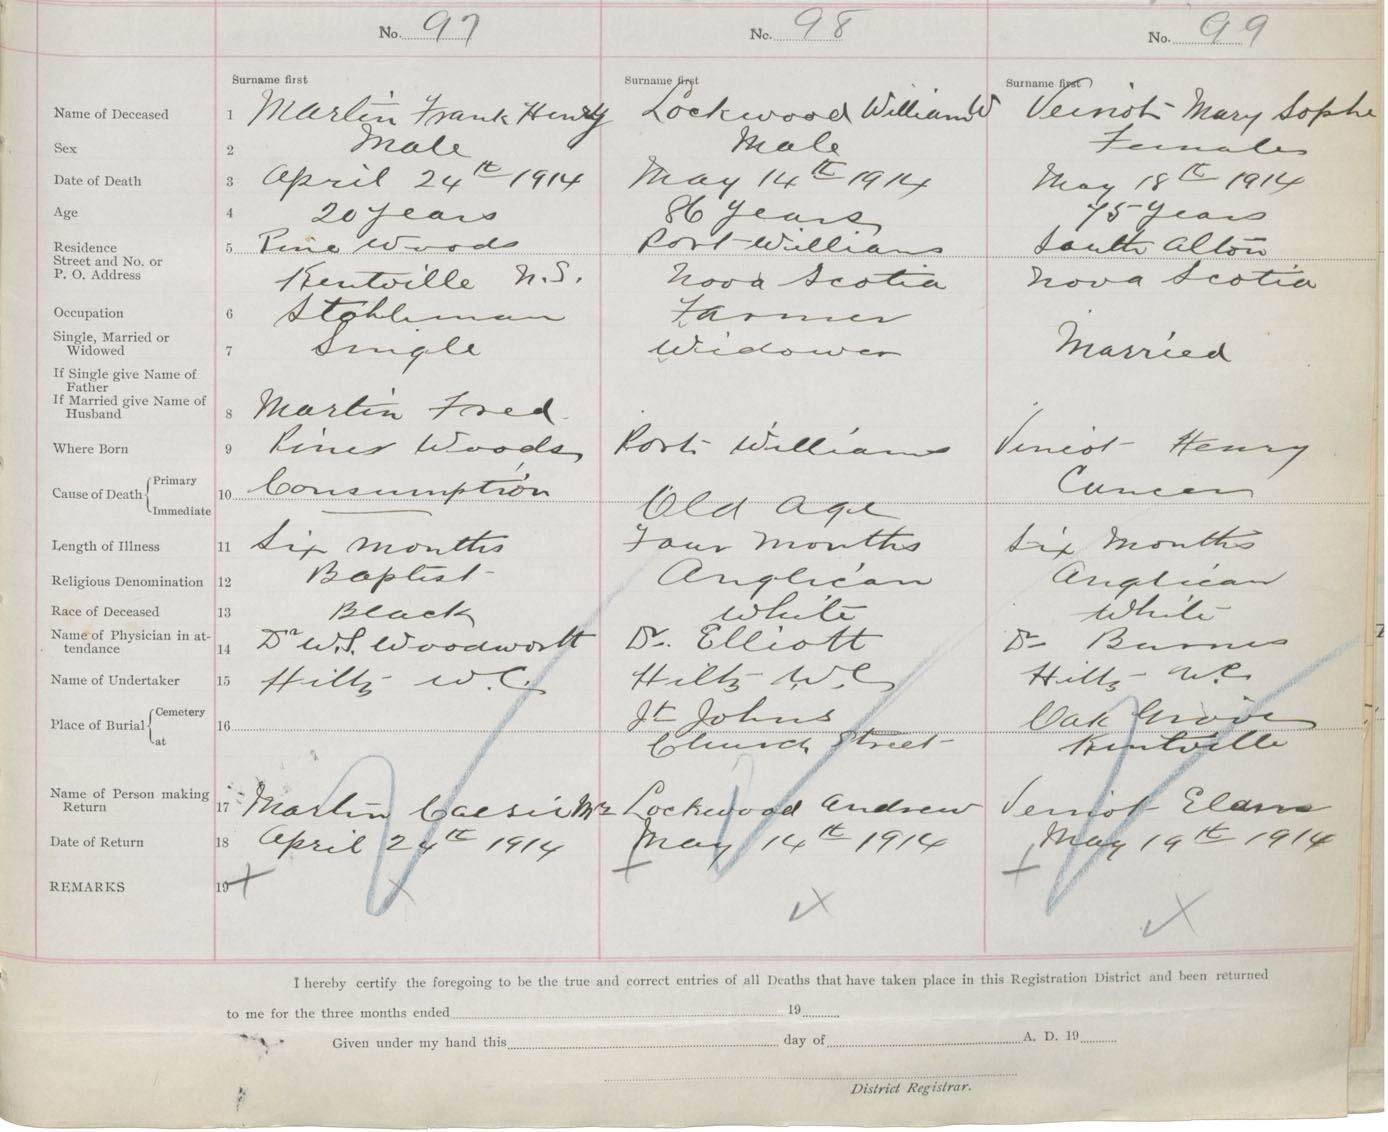 No. 97 No. 98 No. 99
Surname first Surname first Surname first
Name of Deceased 1 Martin Frank Henry Lockwood William W Veiniot Mary Sophe
Sex 2 Male Male Female
Date of Death 3 April 24th 1914 May 14th 1914 May 18th 1914
Age 4 20 years 86 years 75 years
Residence 5 Pine Woods Port Williams South Alton
Street and No. or
P. O. Address Kentville N.S. Nova Scotia Nova Scotia
Occupation 6 Farmer
Single, Married or
Widowed 7 Single Widower Married
If Single give Name of
Father
If Married give Name of
Husband 8 Martin Fred
Where Born 9 Pines Woods Port Williams Veniot Henry
Cause of Death Primary 10 Consumption Cancer
Immediate Old Age
Length of Illness 11 Six months Four months Six months
Religious Denomination 12 Baptist Anglican Anglican
Race of Deceased 13 Black White White
Name of Physician in at-
tendance 14 Dr W.S. Woodworth Dr. Elliott Dr Burns
Name of Undertaker 15 Hiltz W.C. Hiltz W.C Hiltz W.C
Place of Burial Cemetery 16 St Johns Oak Grove
at Church Street Kentville
Name of Person making
Return 17 Martin Lockwood Andrew Veniot
Date of Return 18 April 24th 1914 May 14th 1914 May 19th 1914
REMARKS 19
I hereby certify the foregoing to be the true and correct entries of all Deaths that have taken place in this Registration District and been returned
to me for the three months ended 19
Given under my hand this day of A. D. 19
District Registrar.